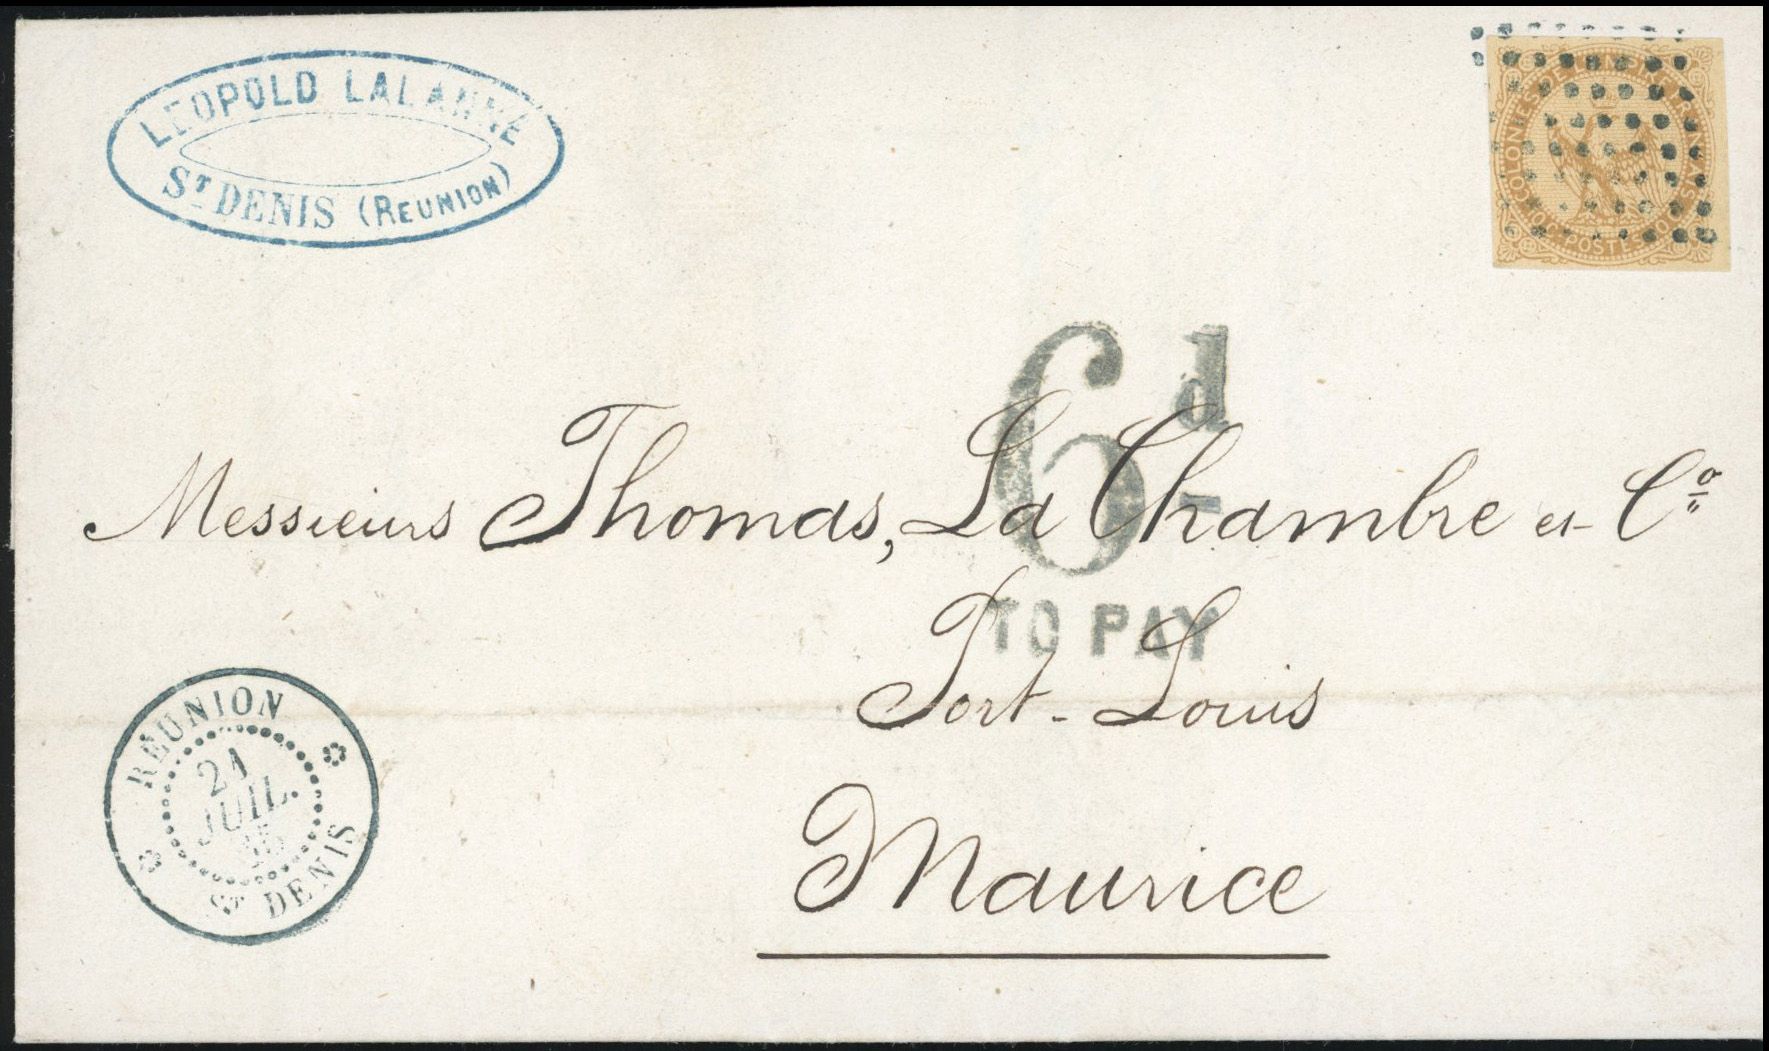 LEOPOLD LALANNE
ST DENIS (REUNION)
COLONIES DE L'EMP
POSTES
6d
TO PAY
Messieurs Thomas, La Chambre et Co
Port-Louis
Maurice
RÉUNION
21
JUIL.
ST DENIS